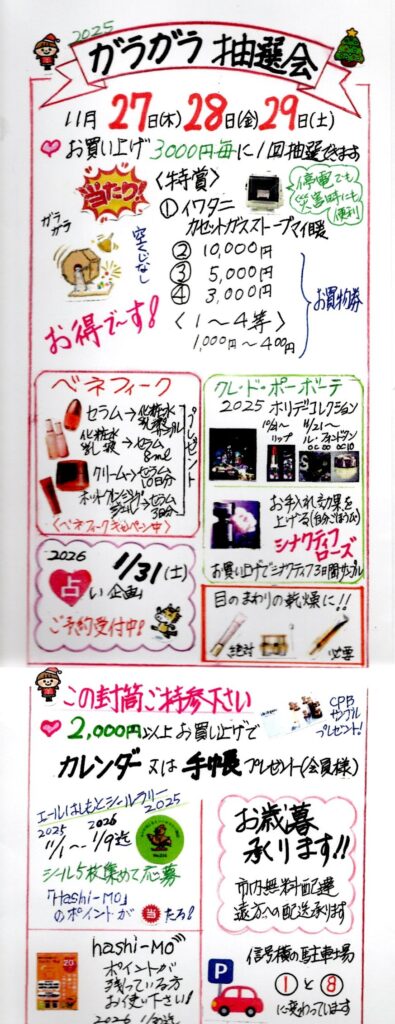 2025
ガラガラ抽選会
11月27日(木)28日(金)29日(土)
お買い上げ3000円毎に1回抽選できます
当たり!
ガラガラ
空くじなし
お得で〜す!
〈特賞〉
①イワタニ
カセットガスストーブマイ暖
停電でも
災害時にも
便利
② 10,000円
③ 5,000円
④ 3,000円
お買物券
〈1〜4等〉
1,000円〜400円
ベネフィーク
セラム→化粧水
乳液
化粧水
乳液→セラム
8ml
クリーム→セラム
10日分
ホットクレンジング
ジェル→セラム
3日分
プレゼント
〈ベネフィークキャンペーン中〉
クレ・ド・ポーボーテ
2025 ホリデーコレクション
リップ
11/21〜
お手入れ効果を
上げる
シナクティフ
ローズ
お買い上げでシナクティフ3日間サンプル
2026
1/31(土)
占い企画
ご予約受付中!
目のまわりの乾燥に!!
絶対
必要
この封筒ご持参下さい
2,000円以上お買い上げで
CPB
サンプル
プレゼント!
カレンダー又は手帳プレゼント(会員様)
エールはしもとシールラリー
2025
2025 2026
11/1〜1/9迄
シール5枚集めて応募
「Hashi-mo」
のポイントが当たる!
お歳暮
承ります!!
市内無料配達
遠方への配送承ります
hashi-mo
ポイントが
残っている方
お使い下さい!
信号横の駐車場
P
①と⑧
に変わっています